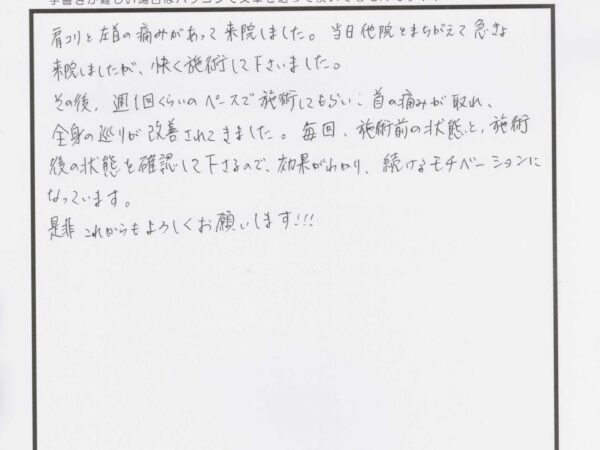 肩コリと左首の痛みがあって来院しました。当日他院とまちがえて急きょ
来院しましたが、快く施術して下さいました。
その後、週1回くらいのペースで施術してもらい、首の痛みが取れ、
全身の巡りが改善されてきました。毎回、施術前の状態と、施術
後の状態を確認して下さるので、効果がわかり、続けるモチベーションに
なっています。
是非これからもよろしくお願いします!!!